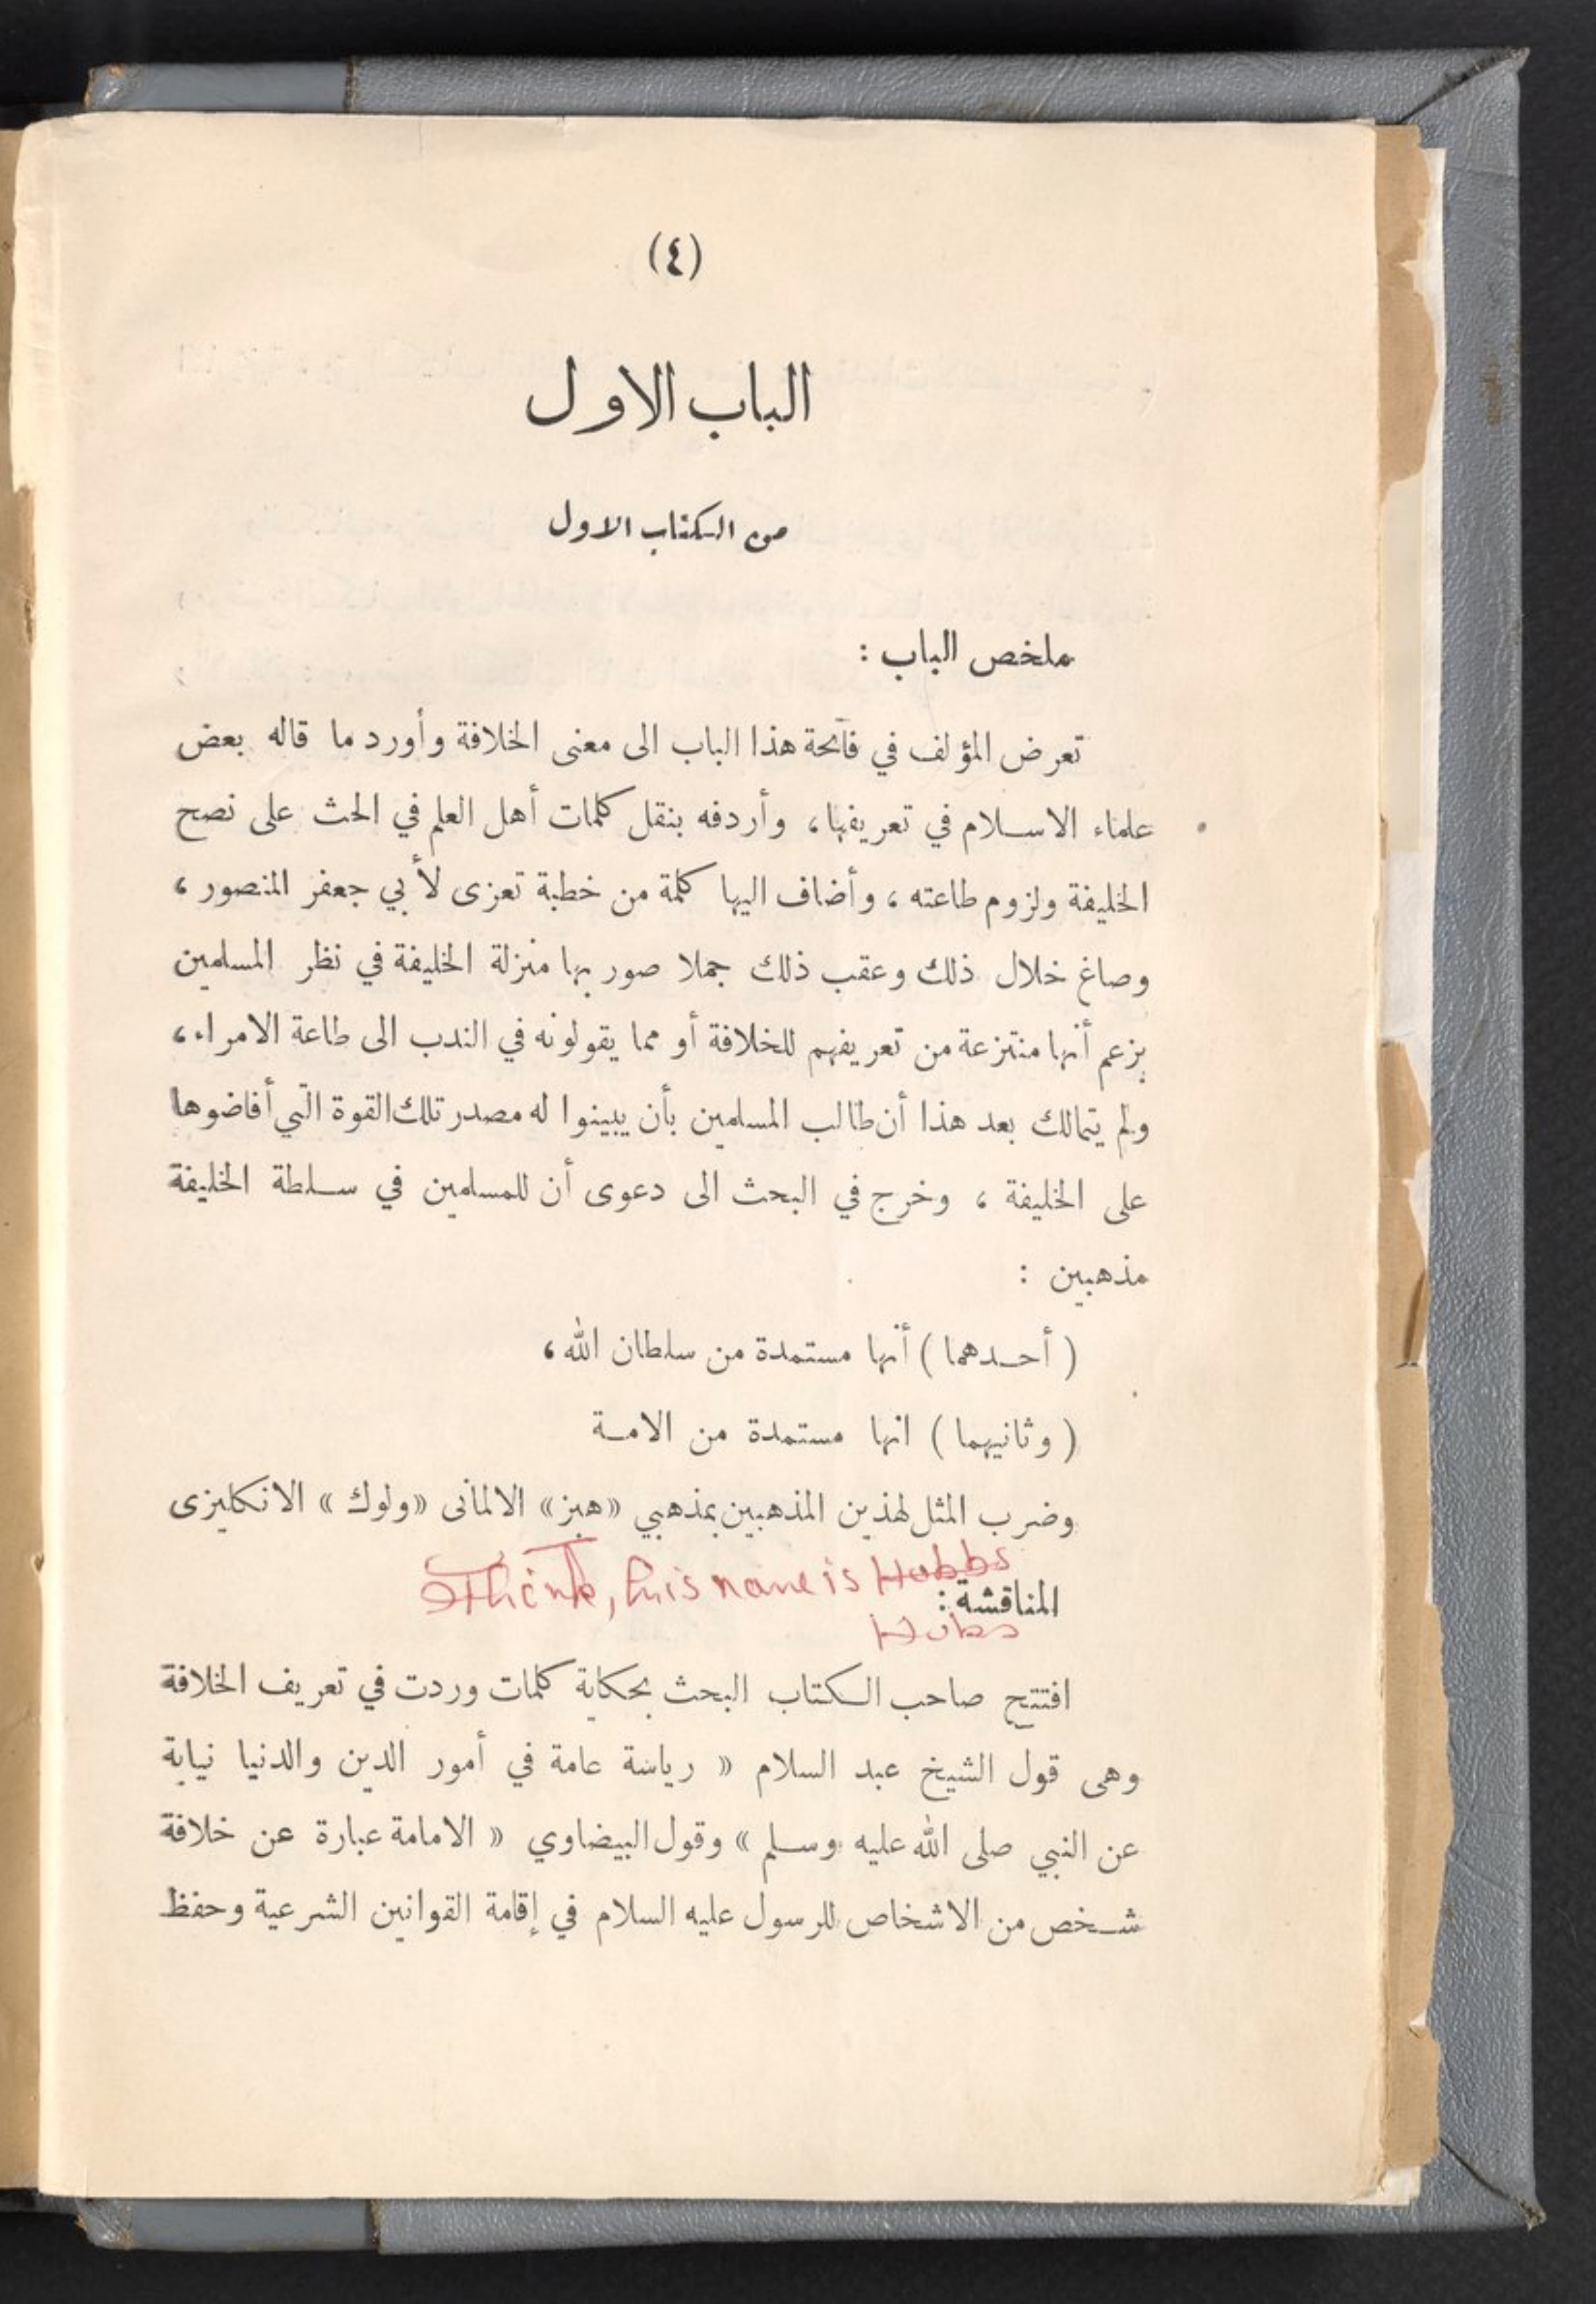 (٤)
الباب الاول
من الكتاب الاول
ملخص الباب :
تعرض المؤلف في فاتحة هذا الباب الى معنى الخلافة وأورد ما قاله بعض
علماء الاسلام في تعريفها، وأردفه بنقل كلمات أهل العلم في الحث على نصح
الخليفة ولزوم طاعته ، وأضاف اليها كلمة من خطبة تعزى لأبي جعفر المنصور ،
وصاغ خلال ذلك وعقب ذلك جملا صور بها منزلة الخليفة في نظر المسلمين
بزعم أنها منتزعة من تعريفهم للخلافة أو مما يقولونه في الندب الى طاعة الامراء ،
ولم يتمالك بعد هذا أن طالب المسلمين بأن يبينوا له مصدر تلك القوة التي أفاضوها
على الخليفة ، وخرج في البحث الى دعوى أن للمسلمين في سلطة الخليفة
مذهبين :
( أحدهما ) أنها مستمدة من سلطان الله ،
( وثانيهما ) انها مستمدة من الامة
وضرب المثل لهذين المذهبين بمذهبي « هبز » الالمانى « ولوك » الانكليزى
I Think, his name is Hobbs
المناقشة :
Hobs
افتتح صاحب الكتاب البحث بحكاية كلمات وردت في تعريف الخلافة
وهى قول الشيخ عبد السلام « رياسة عامة في أمور الدين والدنيا نيابة
عن النبي صلى الله عليه وسلم » وقول البيضاوي « الامامة عبارة عن خلافة
شخص من الاشخاص للرسول عليه السلام في إقامة القوانين الشرعية وحفظ